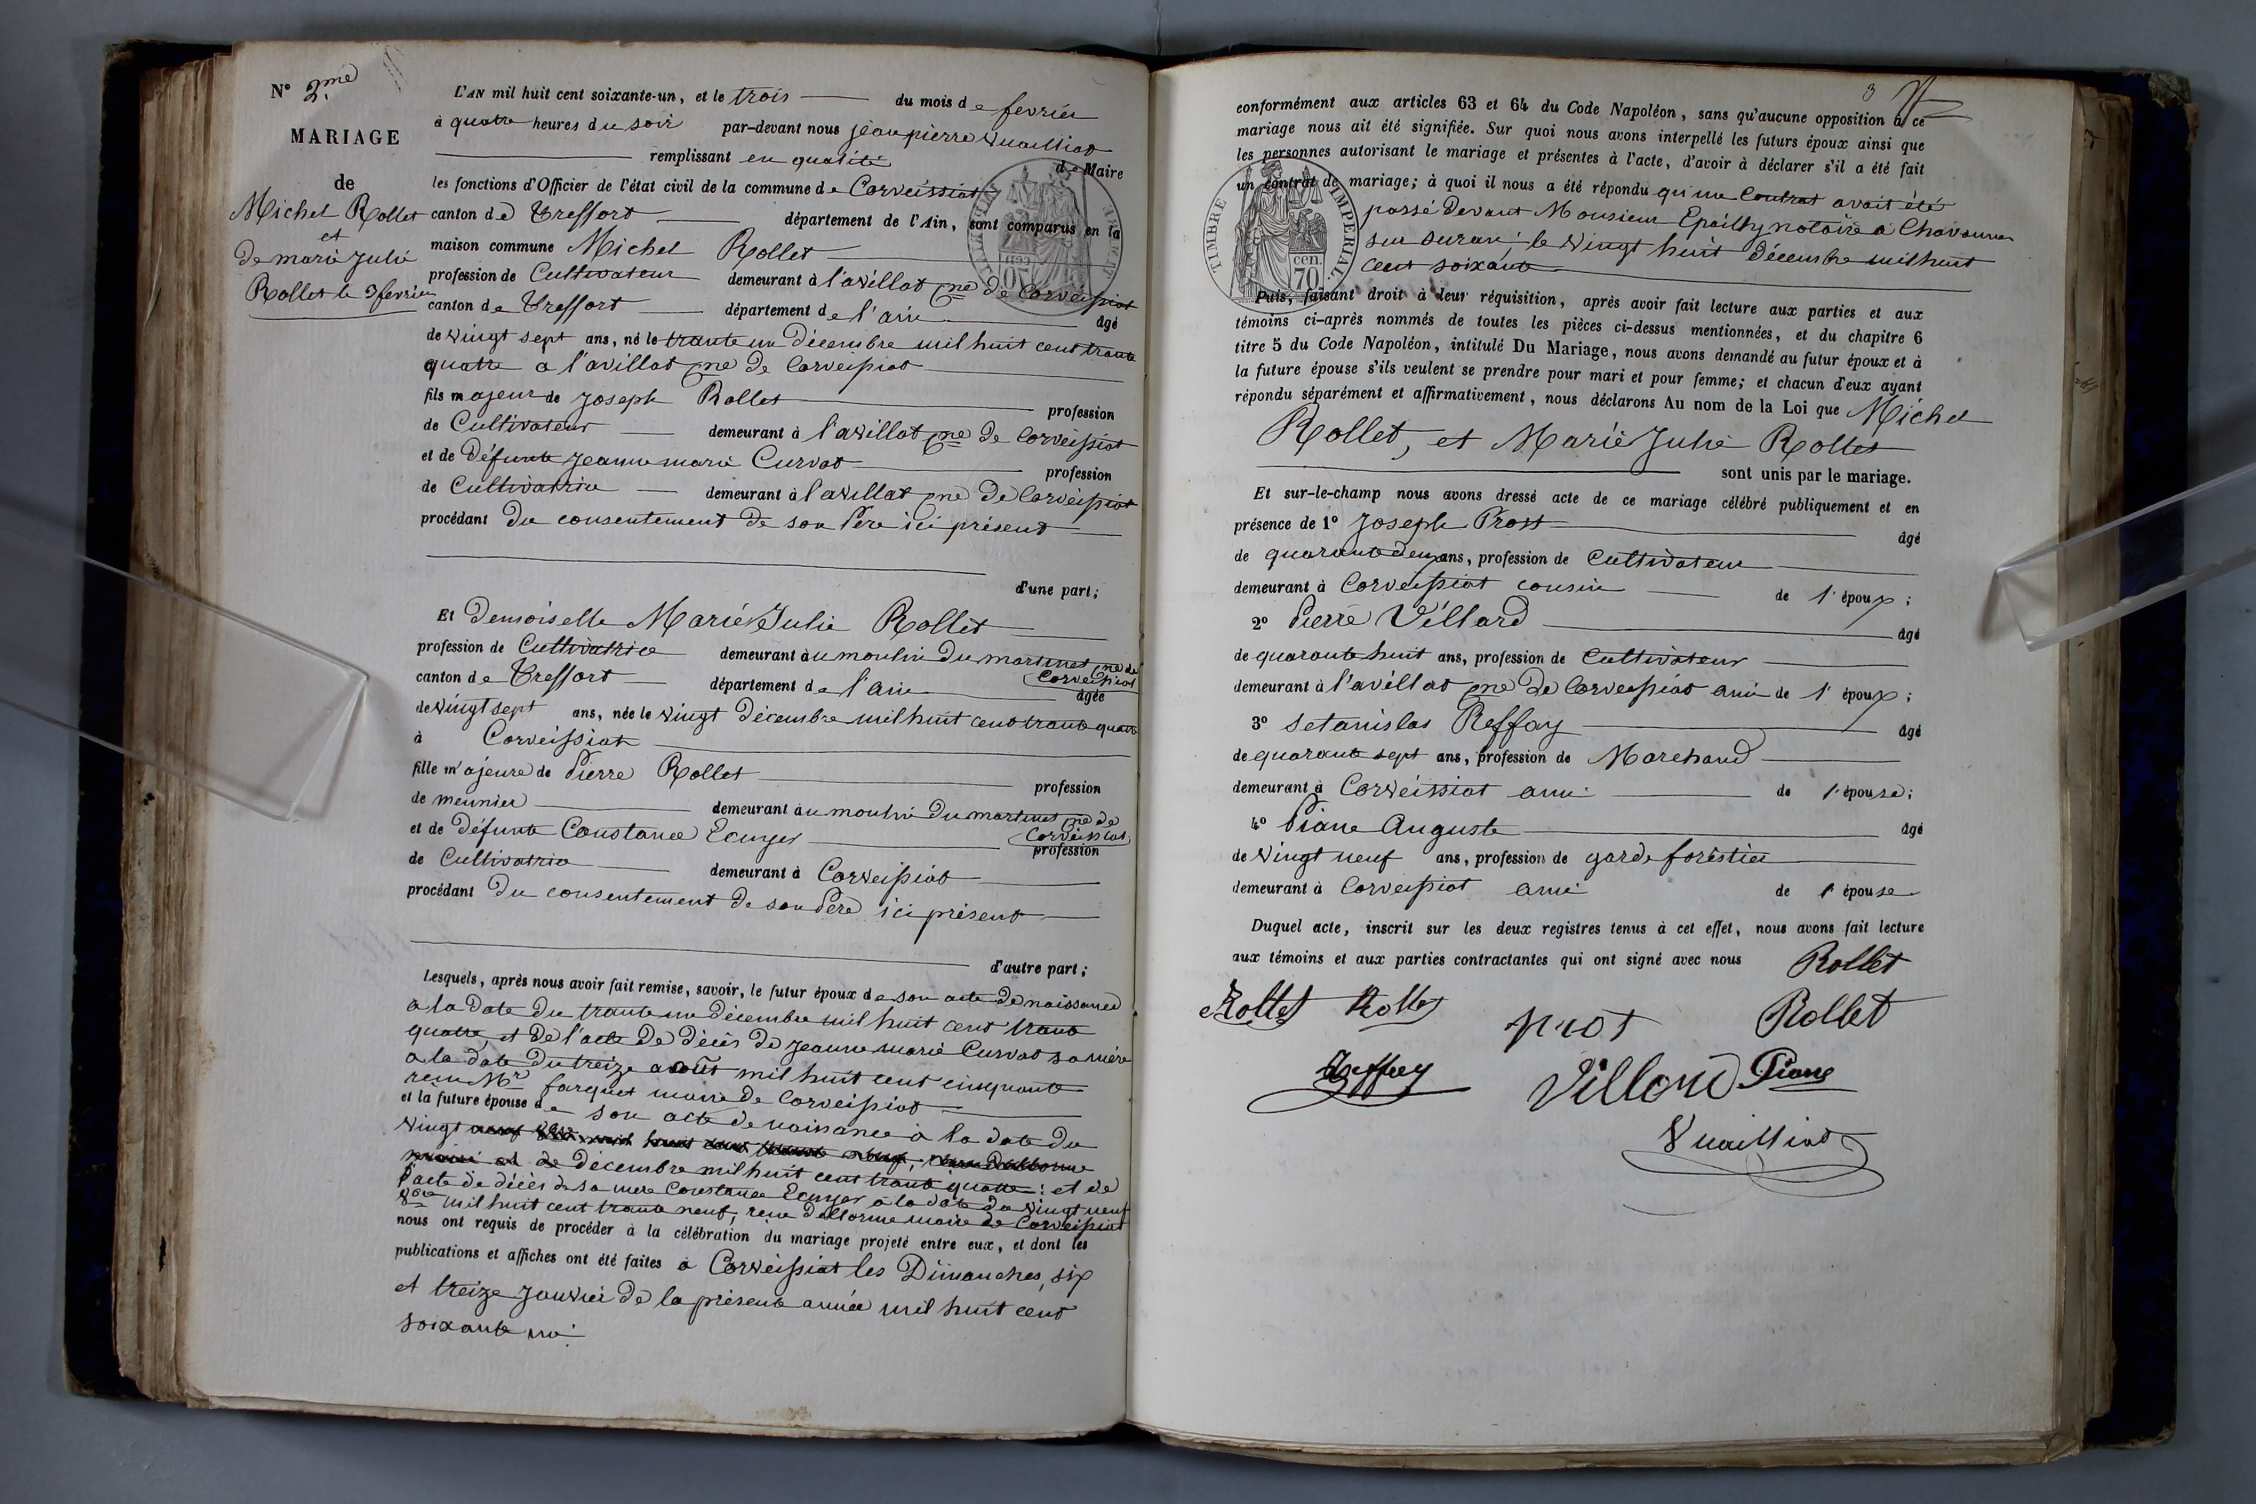 N° 2.me
MARIAGE
de
Michel Rollet
et
de marie Julie
Rollet le 3 fevrier
L'AN mil huit cent soixante-un, et le trois du mois de fevrier
à quatre heures du soir par-devant nous jean pierre Vuailliat
remplissant en qualité de Maire
les fonctions d'Officier de l'état civil de la commune de Corveissiat
canton de Treffort département de l'Ain, sont comparus en la
maison commune Michel Rollet
profession de Cultivateur demeurant à l'avillat cne de Corveissiat
canton de Treffort département de l'ain âgé
de vingt sept ans, né le trante un décembre mil huit cent trante
quatre a l'avillat cne de Corveissiat
fils majeur de Joseph Rollet profession
de Cultivateur demeurant à l'avillat cne de Corveissiat
et de défunte Jeanne marie Curvat profession
de Cultivatrice demeurant à l'avillat cne de Corveissiat
procédant du consentement de son Père ici présent
d'une part;
Et Demoiselle Marie Julie Rollet
profession de Cultivatrice demeurant au moulin du martinet cne de
Corveissiat
canton de Treffort département de l'ain âgée
de vingt sept ans, née le vingt décembre mil huit cent trante quatre
à Corveissiat
fille majeure de Pierre Rollet profession
de meunier demeurant au moulin du martinet cne de
Corveissiat
et de défunte Constance Ecuyer profession
de Cultivatrice demeurant à Corveissiat
procédant du consentement de son Père ici présent
d'autre part;
Lesquels, après nous avoir fait remise, savoir, le futur époux de son acte de naissance
a la date du trante un décembre mil huit cent trante
quatre, et de l'acte de décès de Jeanne marie Curvat sa mère
a la date du treize août mil huit cent cinquante
recu Mr farquet maire de Corveissiat
et la future épouse de son acte de naissance a la date du
vingt
de décembre mil huit cent trante quatre: et de
l'acte de décès de sa mere Constance Ecuyer a la date du vingt neuf
8bre mil huit cent trante neuf, recu Dallorme maire de Corveissiat
nous ont requis de procéder à la célébration du mariage projeté entre eux, et dont les
publications et affiches ont été faites a Corveissiat les Dimanches, six
et treize Janvier de la présente année mil huit cent
soixante un.
3
conformément aux articles 63 et 64 du Code Napoléon, sans qu'aucune opposition à ce
mariage nous ait été signifiée. Sur quoi nous avons interpellé les futurs époux ainsi que
les personnes autorisant le mariage et présentes à l'acte, d'avoir à déclarer s'il a été fait
un contrat de mariage; à quoi il nous a été répondu qu'un Contrat avait été
passé devant Monsieur Epailly notaire a Chavannes
sur suran; le vingt huit décembre mil huit
cent soixante
TIMBRE IMPÉRIAL
70 cen.
Puis, faisant droit à leur réquisition, après avoir fait lecture aux parties et aux
témoins ci-après nommés de toutes les pièces ci-dessus mentionnées, et du chapitre 6
titre 5 du Code Napoléon, intitulé Du Mariage, nous avons demandé au futur époux et à
la future épouse s'ils veulent se prendre pour mari et pour femme; et chacun d'eux ayant
répondu séparément et affirmativement, nous déclarons Au nom de la Loi que Michel
Rollet, et Marie Julie Rollet
sont unis par le mariage.
Et sur-le-champ nous avons dressé acte de ce mariage célébré publiquement et en
présence de 1° Joseph Prost âgé
de quarante deux ans, profession de Cultivateur
demeurant à Corveissiat cousin de l'époux;
2° Pierre Villard âgé
de quarante huit ans, profession de Cultivateur
demeurant à l'avillat cne de Corveissiat ami de l'époux;
3° Setanislas Reffay âgé
de quarante sept ans, profession de Marchand
demeurant à Corveissiat ami de l'épouse;
4° Piane Auguste âgé
de vingt neuf ans, profession de garde forestier
demeurant à Corveissiat ami de l'épouse
Duquel acte, inscrit sur les deux registres tenus à cet effet, nous avons fait lecture
aux témoins et aux parties contractantes qui ont signé avec nous Rollet
Rollet Rollet Prost Rollet
Reffay Villard Piane
Vuailliat